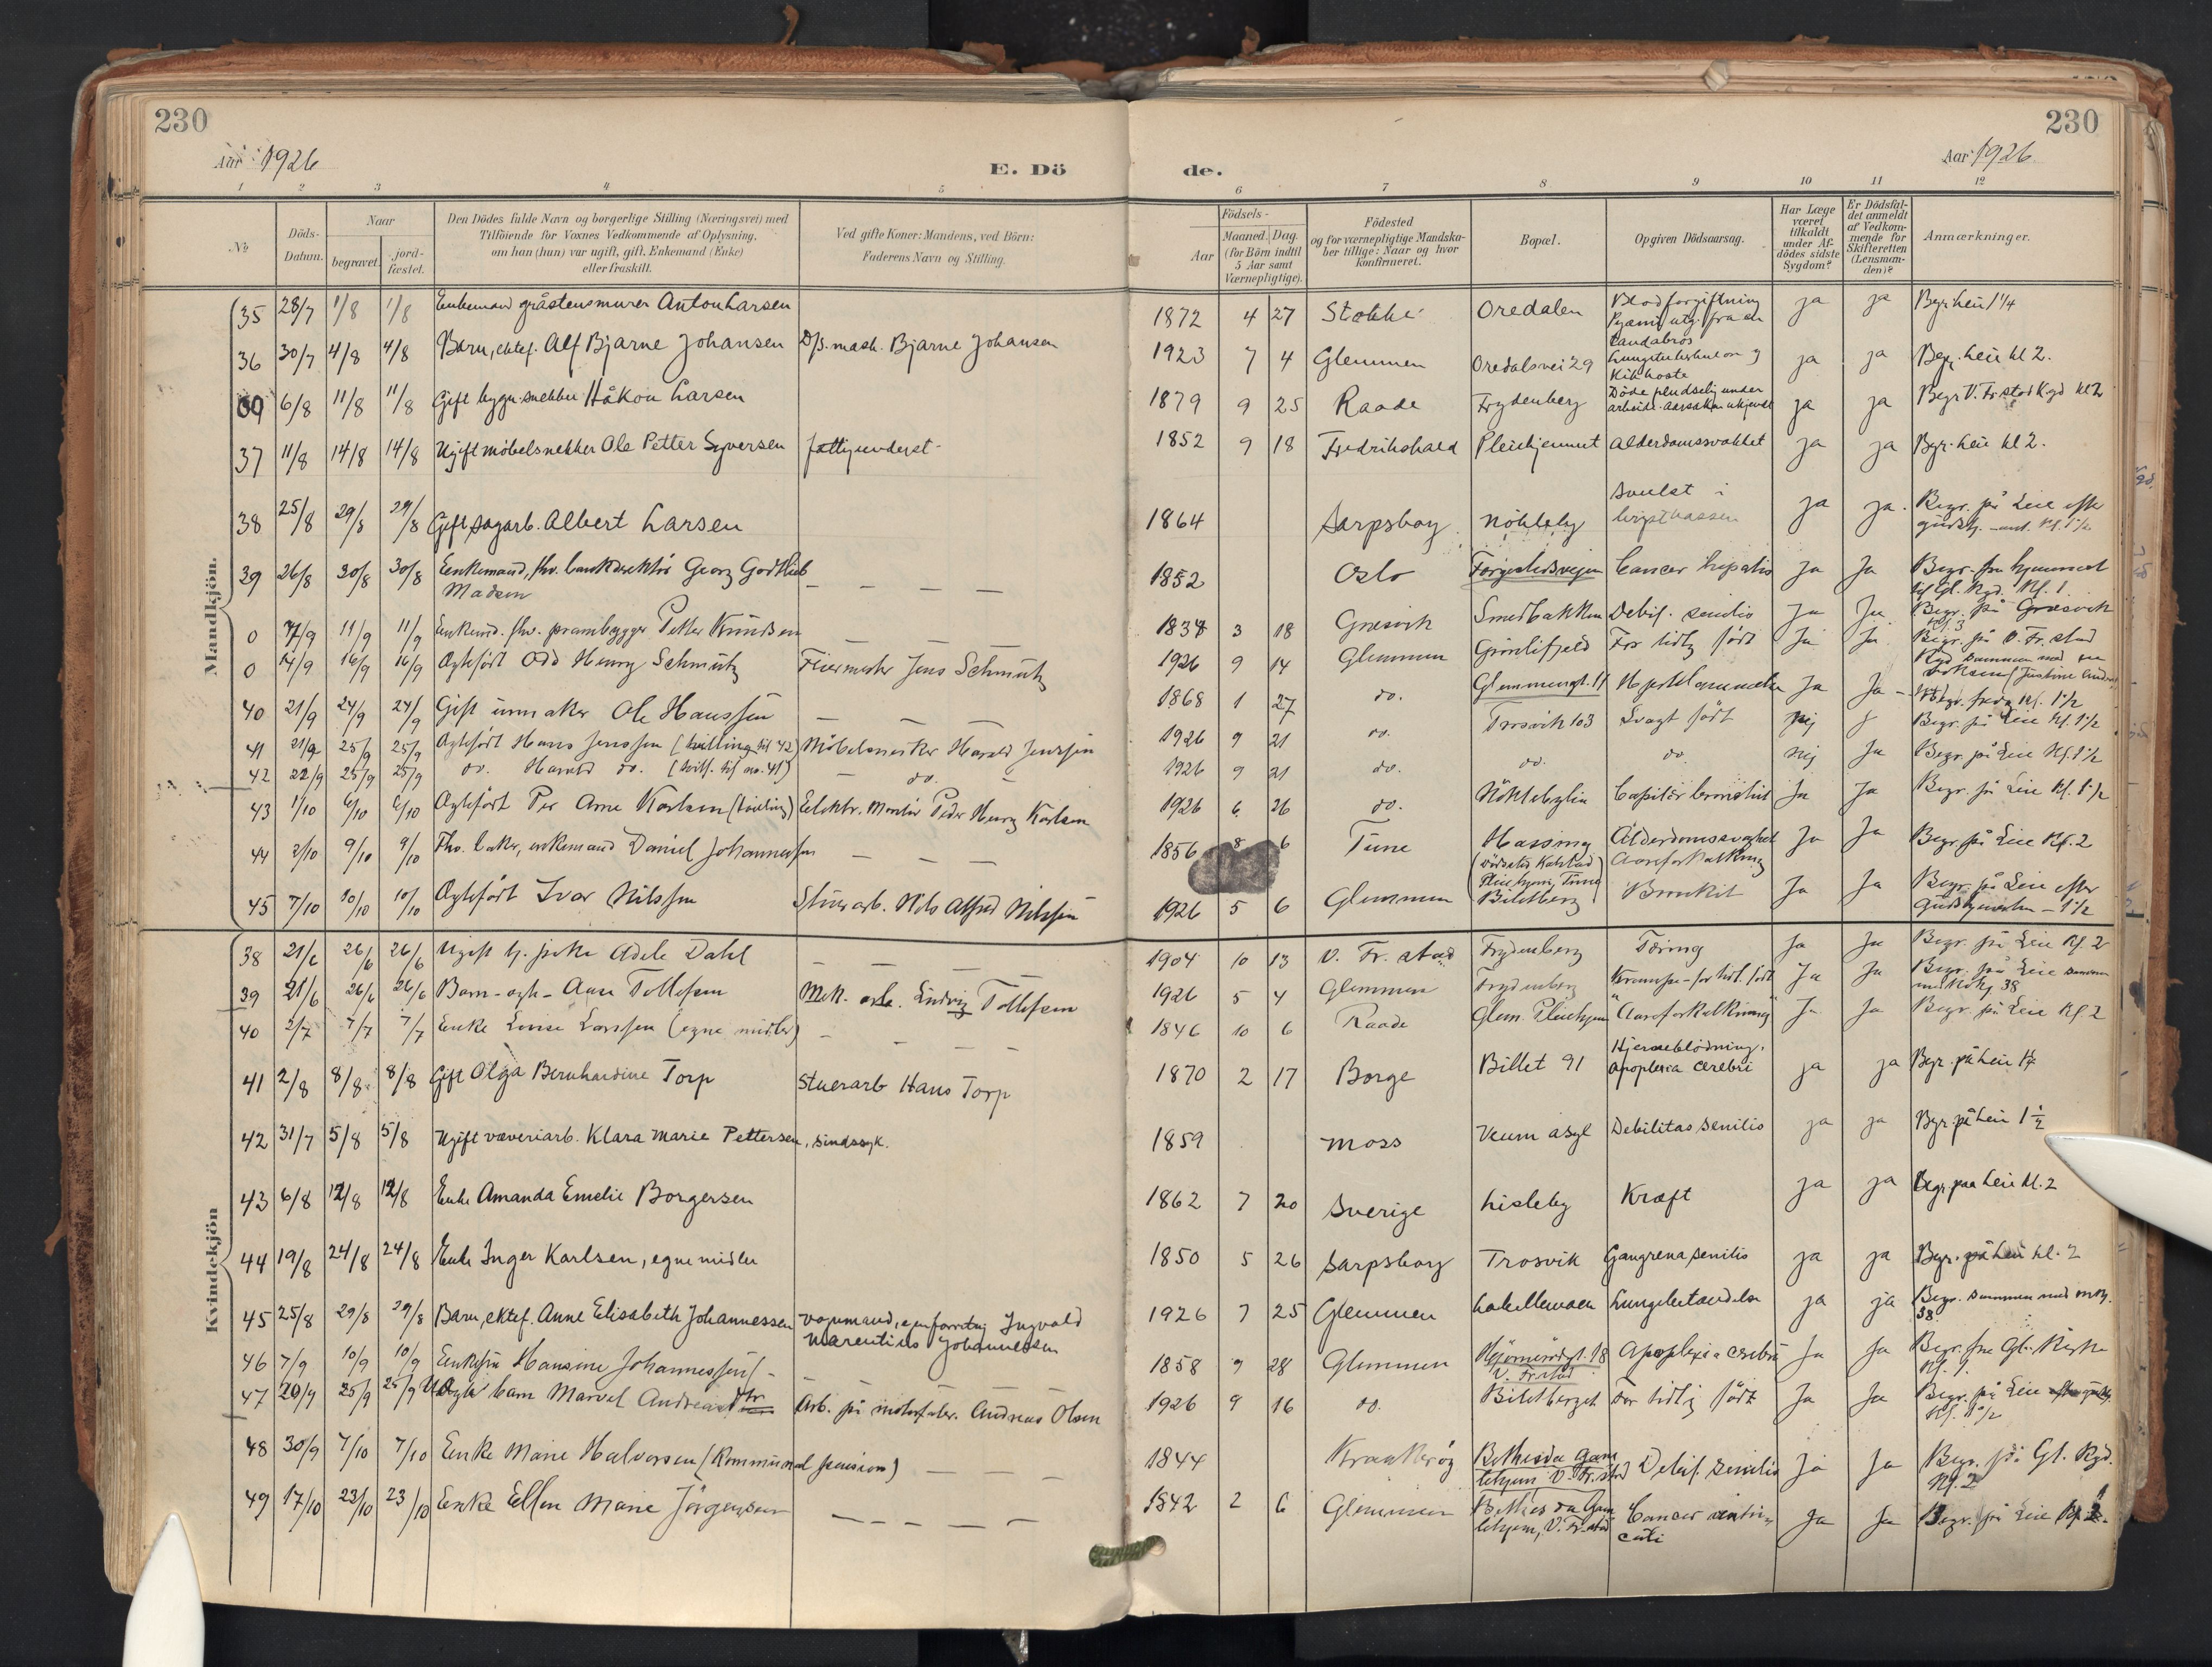 230
230
Aar 1926
E. Dö
de.
Aar 1926
1 2 3 4 5 6 7 8 9 10 11 12
№
Döds-
Datum.
Naar
begravet.
jord-
fæstet.
Den Dödes fulde Navn og borgerlige Stilling (Næringsvei) med
Tilföiende for Voxnes Vedkommende af Oplysning,
om han (hun) var ugift, gift, Enkemand (Enke)
eller fraskilt.
Ved gifte Koner: Mandens, ved Börn:
Faderens Navn og Stilling.
Födsels-
Aar
Maaned.
Dag.
(for Börn indtil
5 Aar samt
Værnepligtige).
Födested
og for værnepligtige Mandska-
ber tillige: Naar og hvor
konfirmeret.
Bopæl.
Opgiven Dödsaarsag.
Har Læge
været
tilkaldt
under Af-
dödes sidste
Sygdom?
Er Dödsfal-
det anmeldt
af Vedkom-
mende for
Skifteretten
(Lensman-
den)?
Anmærkninger.
Mandkjön.
35 28/7 1/8 1/8 Enkemand gråstensmurer Anton Larsen 1872 4 27 Stokke Oredalen Blodforgiftning ja ja
36 30/7 4/8 4/8 Barn, ektef. Alf Bjarne Johansen D/s. mask. Bjarne Johansen 1923 7 4 Glemmen Oredalsvei 29 Kikhoste ja ja Begr. Leie kl 2.
09 6/8 11/8 11/8 Gift bygn. snekker Håkon Larsen 1879 9 25 Raade Frydenberg Döde pludselig under ja ja Begr V. Fr.stad K.gd kl 2
37 11/8 14/8 14/8 Ugift möbelsnekker Ole Petter Syversen fattigunderst. 1852 9 18 Fredrikshald Pleiehjemmet Alderdomssvakhet ja ja Begr. Leie kl 2.
38 25/8 29/8 29/8 Gift sagarb. Albert Larsen 1864 Sarpsborg Nökleby Svulst i ja ja. Begr. på Leie efter
39 26/8 30/8 30/8 Enkemand, fhv. bankdirektör Georg Gottlieb
Madsen 1852 Oslo Cancer hepatis Ja Ja Begr. fra hjemmet
til Gl. Kgd. Kl. 1
0 7/9 11/9 11/9 Enkemd. fhv. prambygger Petter Knudsen 3 18 Græsvik Smedbakken Debil. senilis Ja Ja Begr. på Græsvik
Kl. 3
0 14/9 16/9 16/9 Ægtefödt Odd Henry Schmütz Feiermester Jens Schmütz 1926 9 14 Glemmen Grönlifjeld For tidlig födt Ja Ja Begr. på V. Fr.stad
40 21/9 24/9 24/9 Gift urmaker Ole Hanssen 1868 1 27 do. Glemmengt. 11 Ja Ja
41 21/9 25/9 25/9 Ægtefödt Hans Jenssen (tvilling til 42) Möbelsnekker Harald Jenssen 1926 9 21 do. Trosvik 103 Svagt födt Nej Begr. på Leie Kl. 1½
42 22/9 25/9 25/9 do. Harald do. (tvill. til no. 41) do. 1926 9 21 do. do. do. Nej Ja Begr. på Leie Kl. 1½
43 1/10 6/10 6/10 Ægtefödt Per Arne Karlsen (tvilling) Elektr. Montör Peder Henry Karlsen 1926 6 26 do. Nöklebylia Capilär bronchit Ja Ja Begr. på Leie Kl. 1½
44 2/10 9/10 9/10 Fhv. baker, enkemand Daniel Johannessen 1856 8 6 Tune Hassing Alderdomssvaghet
Aareforkalkning Ja Ja Begr. på Leie Kl. 2
45 7/10 10/10 10/10 Ægtefödt Ivar Nilssen Stuerarb. Nils Alfred Nilssen 1926 5 6 Glemmen Bildtberg Bronkit Ja Ja Begr. på Leie efter
Gudstjenesten – 1½
Kvindekjön
38 21/6 26/6 26/6 Ugift hj. pike Adele Dahl 1904 10 13 V. Fr.stad Frydenberg Tæring Ja Ja Begr. på Leie Kl. 2
39 21/6 26/6 26/6 Barn - egte - Aase Tollefsen Mek. arb. Ludvig Tollefsen 1926 5 4 Glemmen Frydenberg Krampe - for tidl. födt Ja Ja Begr. på Leie sammen
40 2/7 7/7 7/7 Enke Lovise Larssen (egne midler) 1846 10 6 Raade Glem. Pleiehjem "Aareforkalkning" Ja Ja Begr. på Leie Kl. 2
41 2/8 8/8 8/8 Gift Olga Bernhardine Torp Stuerarb Hans Torp 1870 2 17 Borge Billet 91 Hjerneblödning.
apoplexia cerebri ja ja Begr. på Leie
42 31/7 5/8 5/8 Ugift væveriarb. Klara Marie Pettersen, sindssyk. 1859 Moss Veum asyl Debilitas senilis ja ja Begr. på Leie 1½
43 6/8 12/8 12/8 Enke Amanda Emelie Borgersen 1862 7 20 Sverige Lisleby Kræft ja ja Begr. paa Leie kl. 2
44 19/8 24/8 24/8 Enke Inger Karlsen, egne midler 1850 5 26 Sarpsborg Trosvik Gangrena senilis ja ja Begr. på Leie kl. 2
45 25/8 29/8 29/8 Barn, ektef. Anne Elisabeth Johannessen Vognmand, egen forretng Ingvald
Marentius Johannessen 1926 7 25 Glemmen Labellemoen Lungebetændelse ja ja Begr. sammen med
38.
46 7/9 10/9 10/9 Enkefru Hansine Johannessen 1858 9 28 Glemmen V. Fr.stad Apoplexia cerebri Ja Ja Begr. fra Gl. Kirke
Kl. 1
47 20/9 25/9 25/9 barn Marvel Arb. på motorfabr. Andreas Olsen 1926 9 16 do. Bildtberget For tidlig födt Ja Ja Begr. på Leie
Kl. 1½
48 30/9 7/10 7/10 Enke Marie Halvorsen (Kommunal pension) 1844 Kraakeröy Bethesda Gam-
lehjem V. Fr.stad Debil. senilis Ja Ja Begr. på Gl. Kgd.
Kl. 2
49 17/10 23/10 23/10 Enke Ellen Marie Jörgensen 1842 2 6 Glemmen Bethesda Gam-
lehjem, V. Fr.stad Cancer ventri-
culi Ja Ja Begr. på Leie